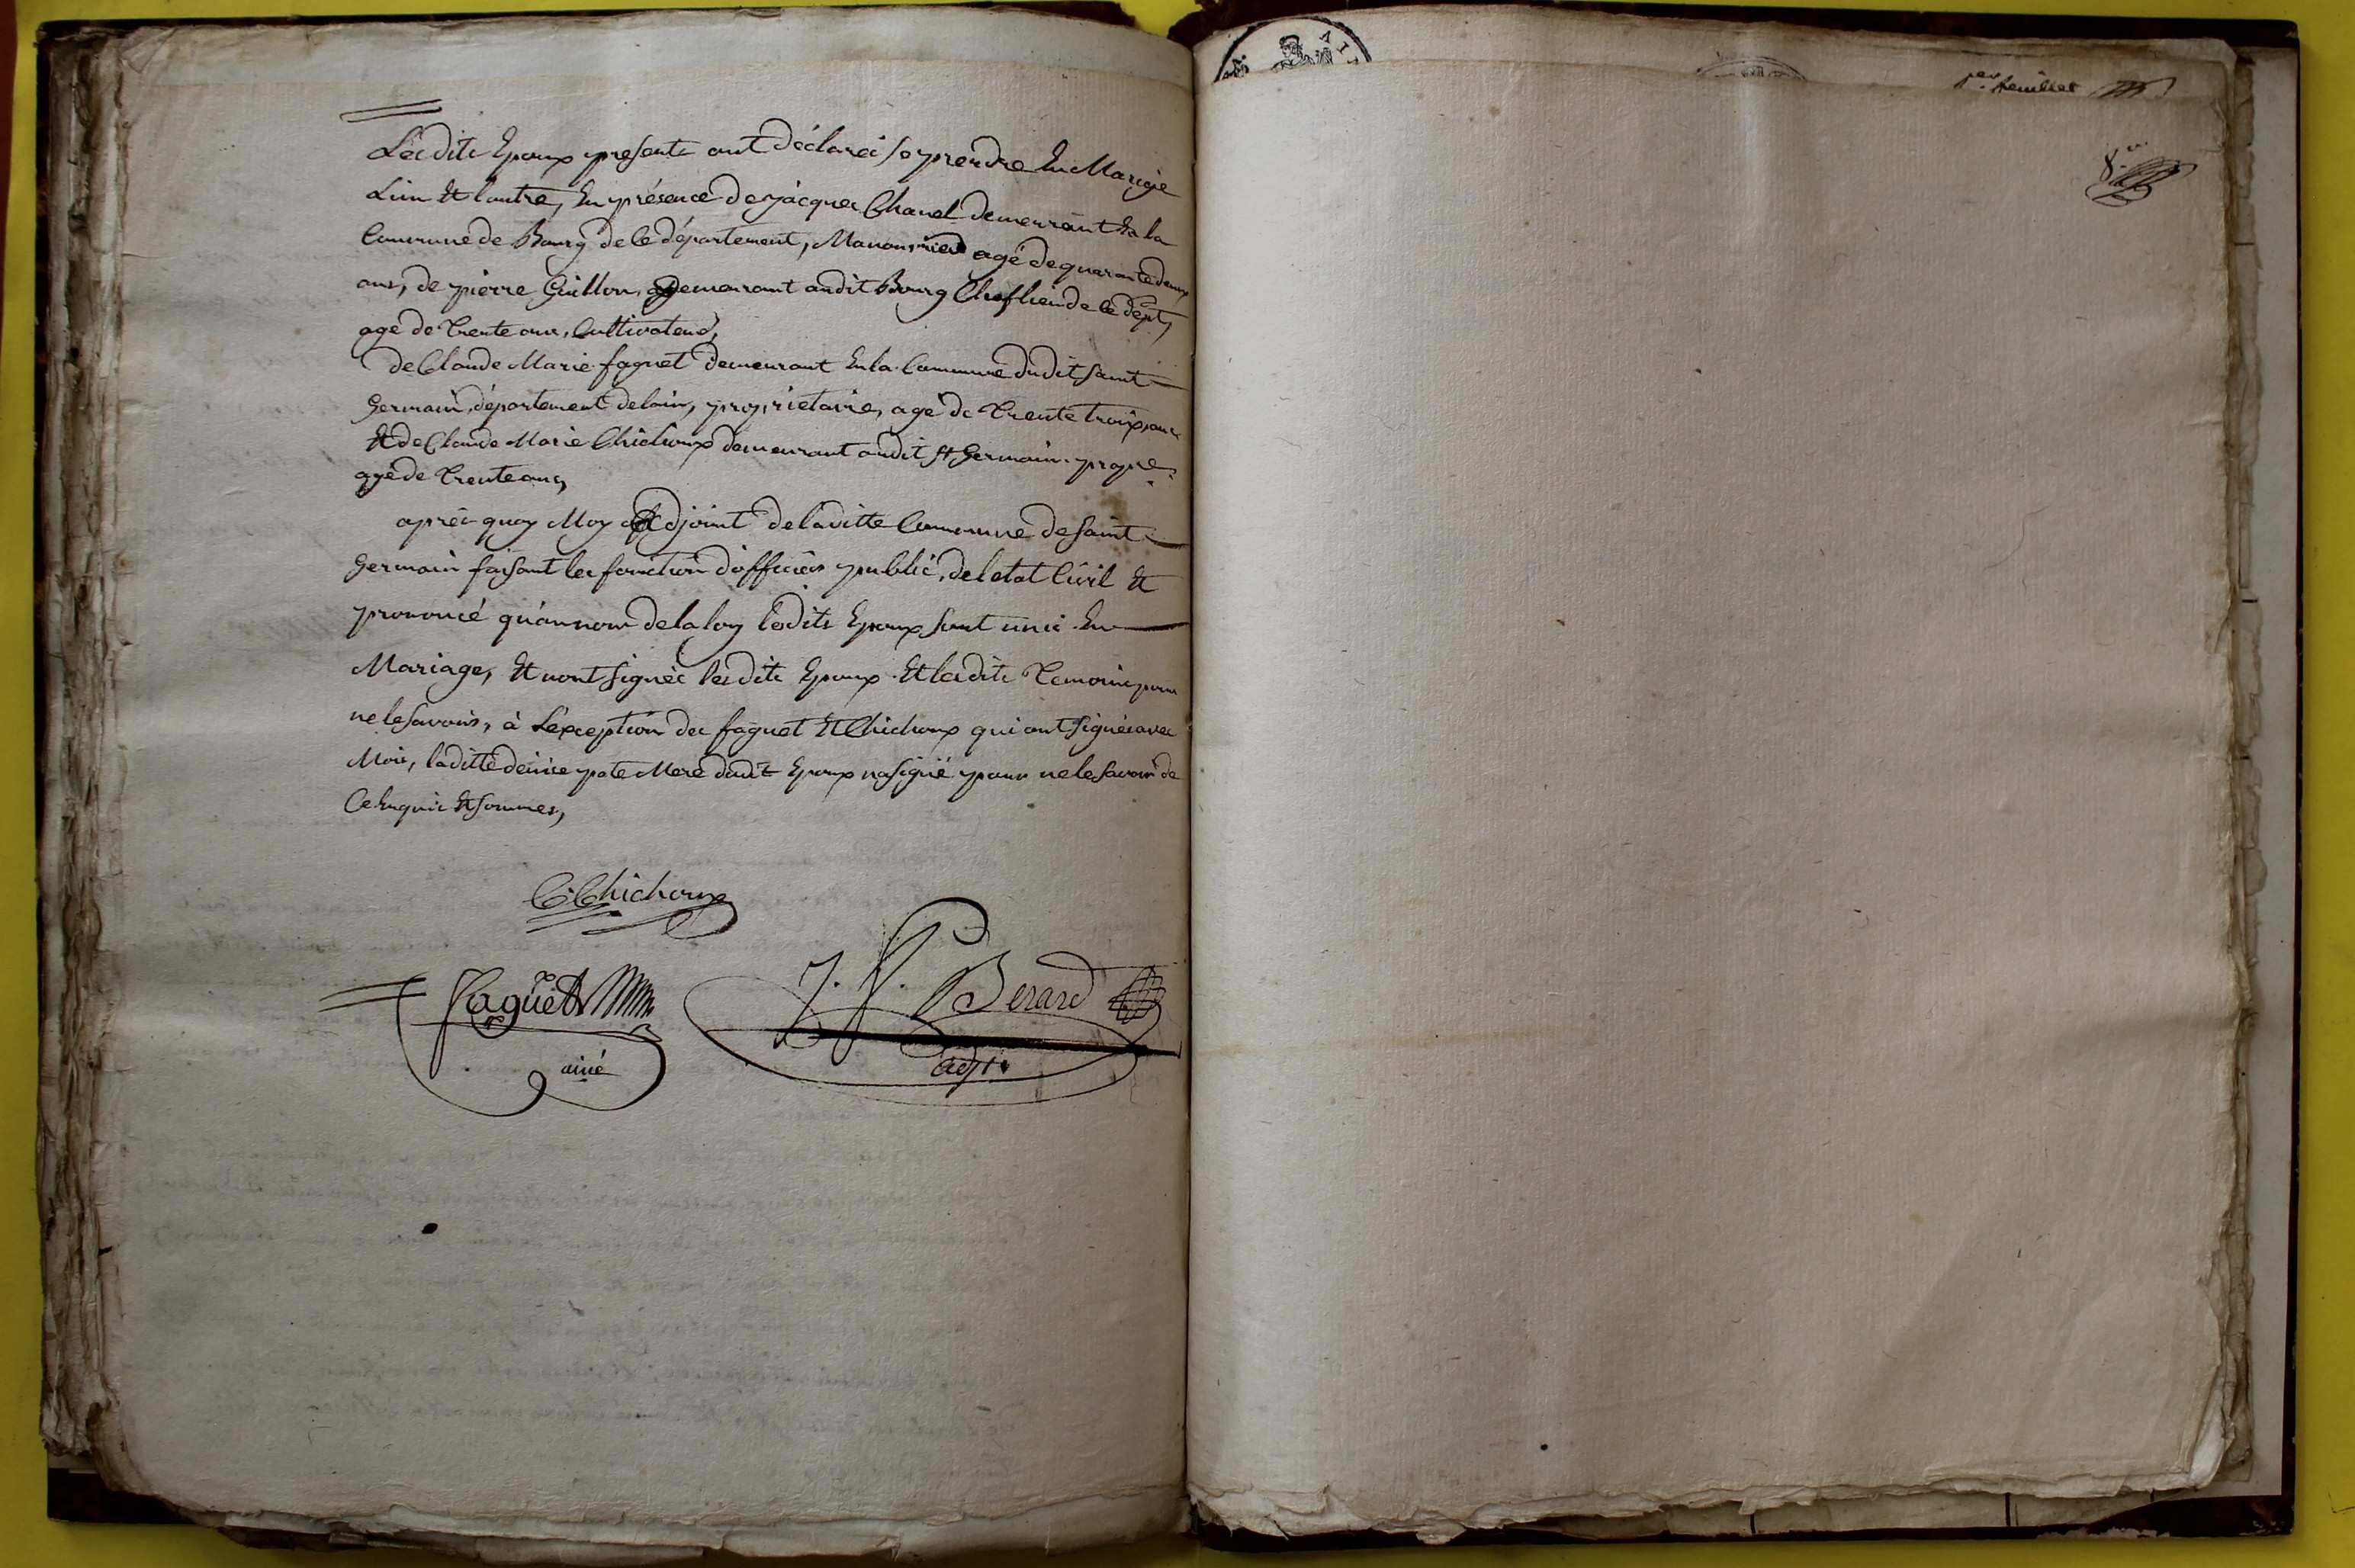 Lesdits Epoux presents ont déclarés se prendre En Mariage
L'un Et l'autre, En présence de jàcques Chanel demeurant En la
Commune de Bourg de ce département, Manouvrier agé de quarante deux
ans, de pierre Guillon, demeurant audit Bourg Cheflieu de ce dépt,
agé de trente ans, Cultivateur,
de Claude Marie faguet demeurant En la Commune dudit Saint
Germain, département de lain, proprietaire, agé de trente trois ans
Et de Claude Marie Chichoux demeurant audit St Germain propre
agé de trente ans,
après quoy Moy adjoint de laditte Commune de Saint
Germain faisant les fonction d'officier public, de letat Civil Et
prononcé qu'au nom de la loy lesdits Epoux sont unis En
Mariage, Et nont signés lesdits Epoux Et lesdits temoins pour
ne le savoir, à L'exception des faguet Et Chichoux qui ont signés avec
Moi, laditte denise pate Mere dudit Epoux na signé pour ne le savoir de
Ce Enquis Et Sommes,
C. Chichoux
Faguet J. F. Berard
ainé adjt
1er feuillet
8.me